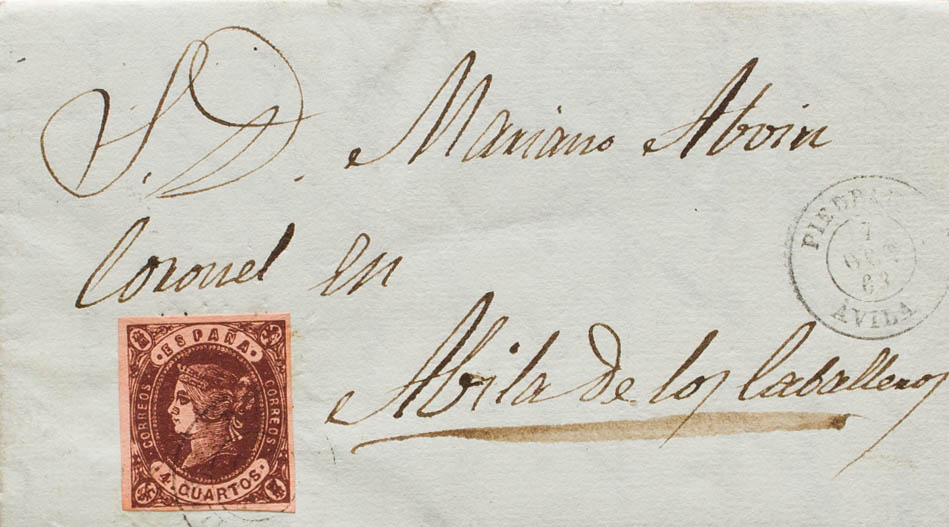 S. D. Mariano Aboin
Coronel en
Abila de los Caballeros
PIEDRA
7
63
AVILA
ESPAÑA
CORREOS
CORREOS
4 CUARTOS